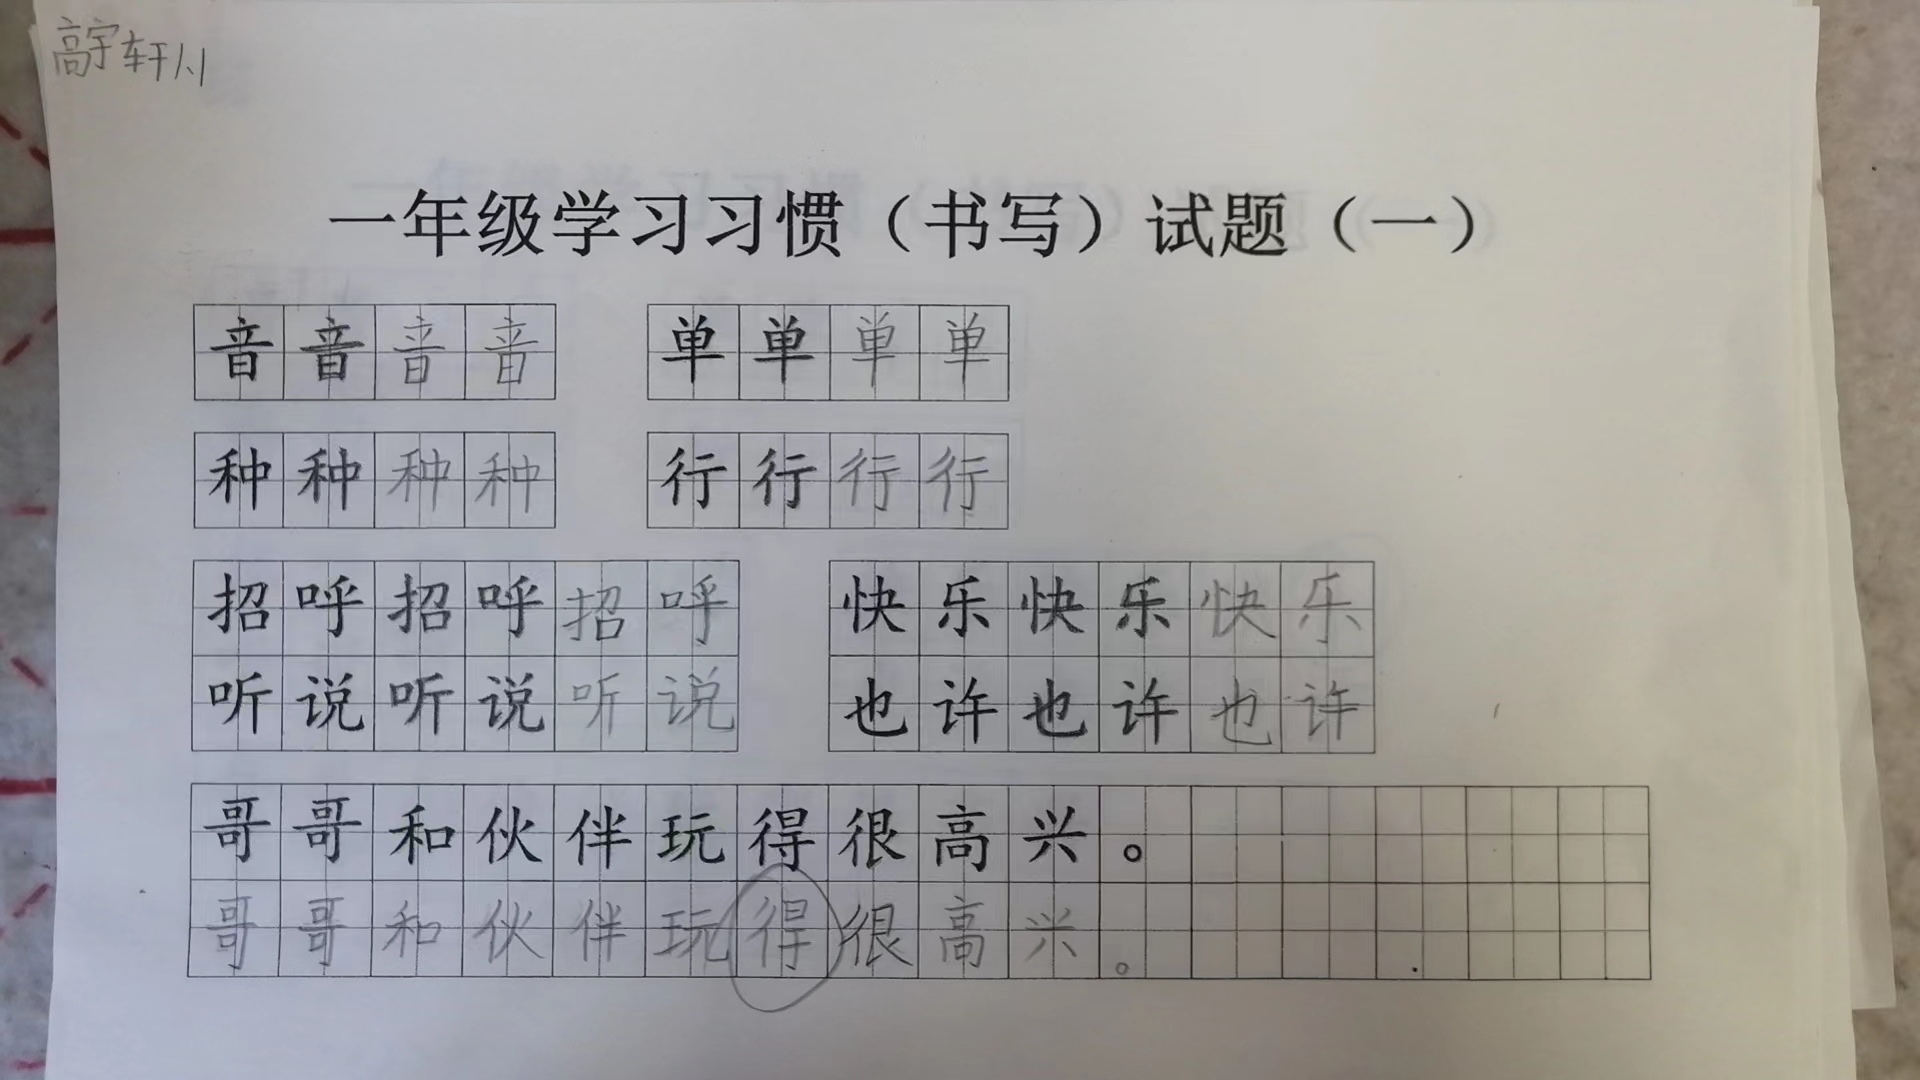 高宇轩1.1
一年级学习习惯（书写）试题（一）
音音音音 单单单单
种种种种 行行行行
招呼招呼招呼 快乐快乐快乐
听说听说听说 也许也许也许
哥哥和伙伴玩得很高兴。
哥哥和伙伴玩得很高兴。